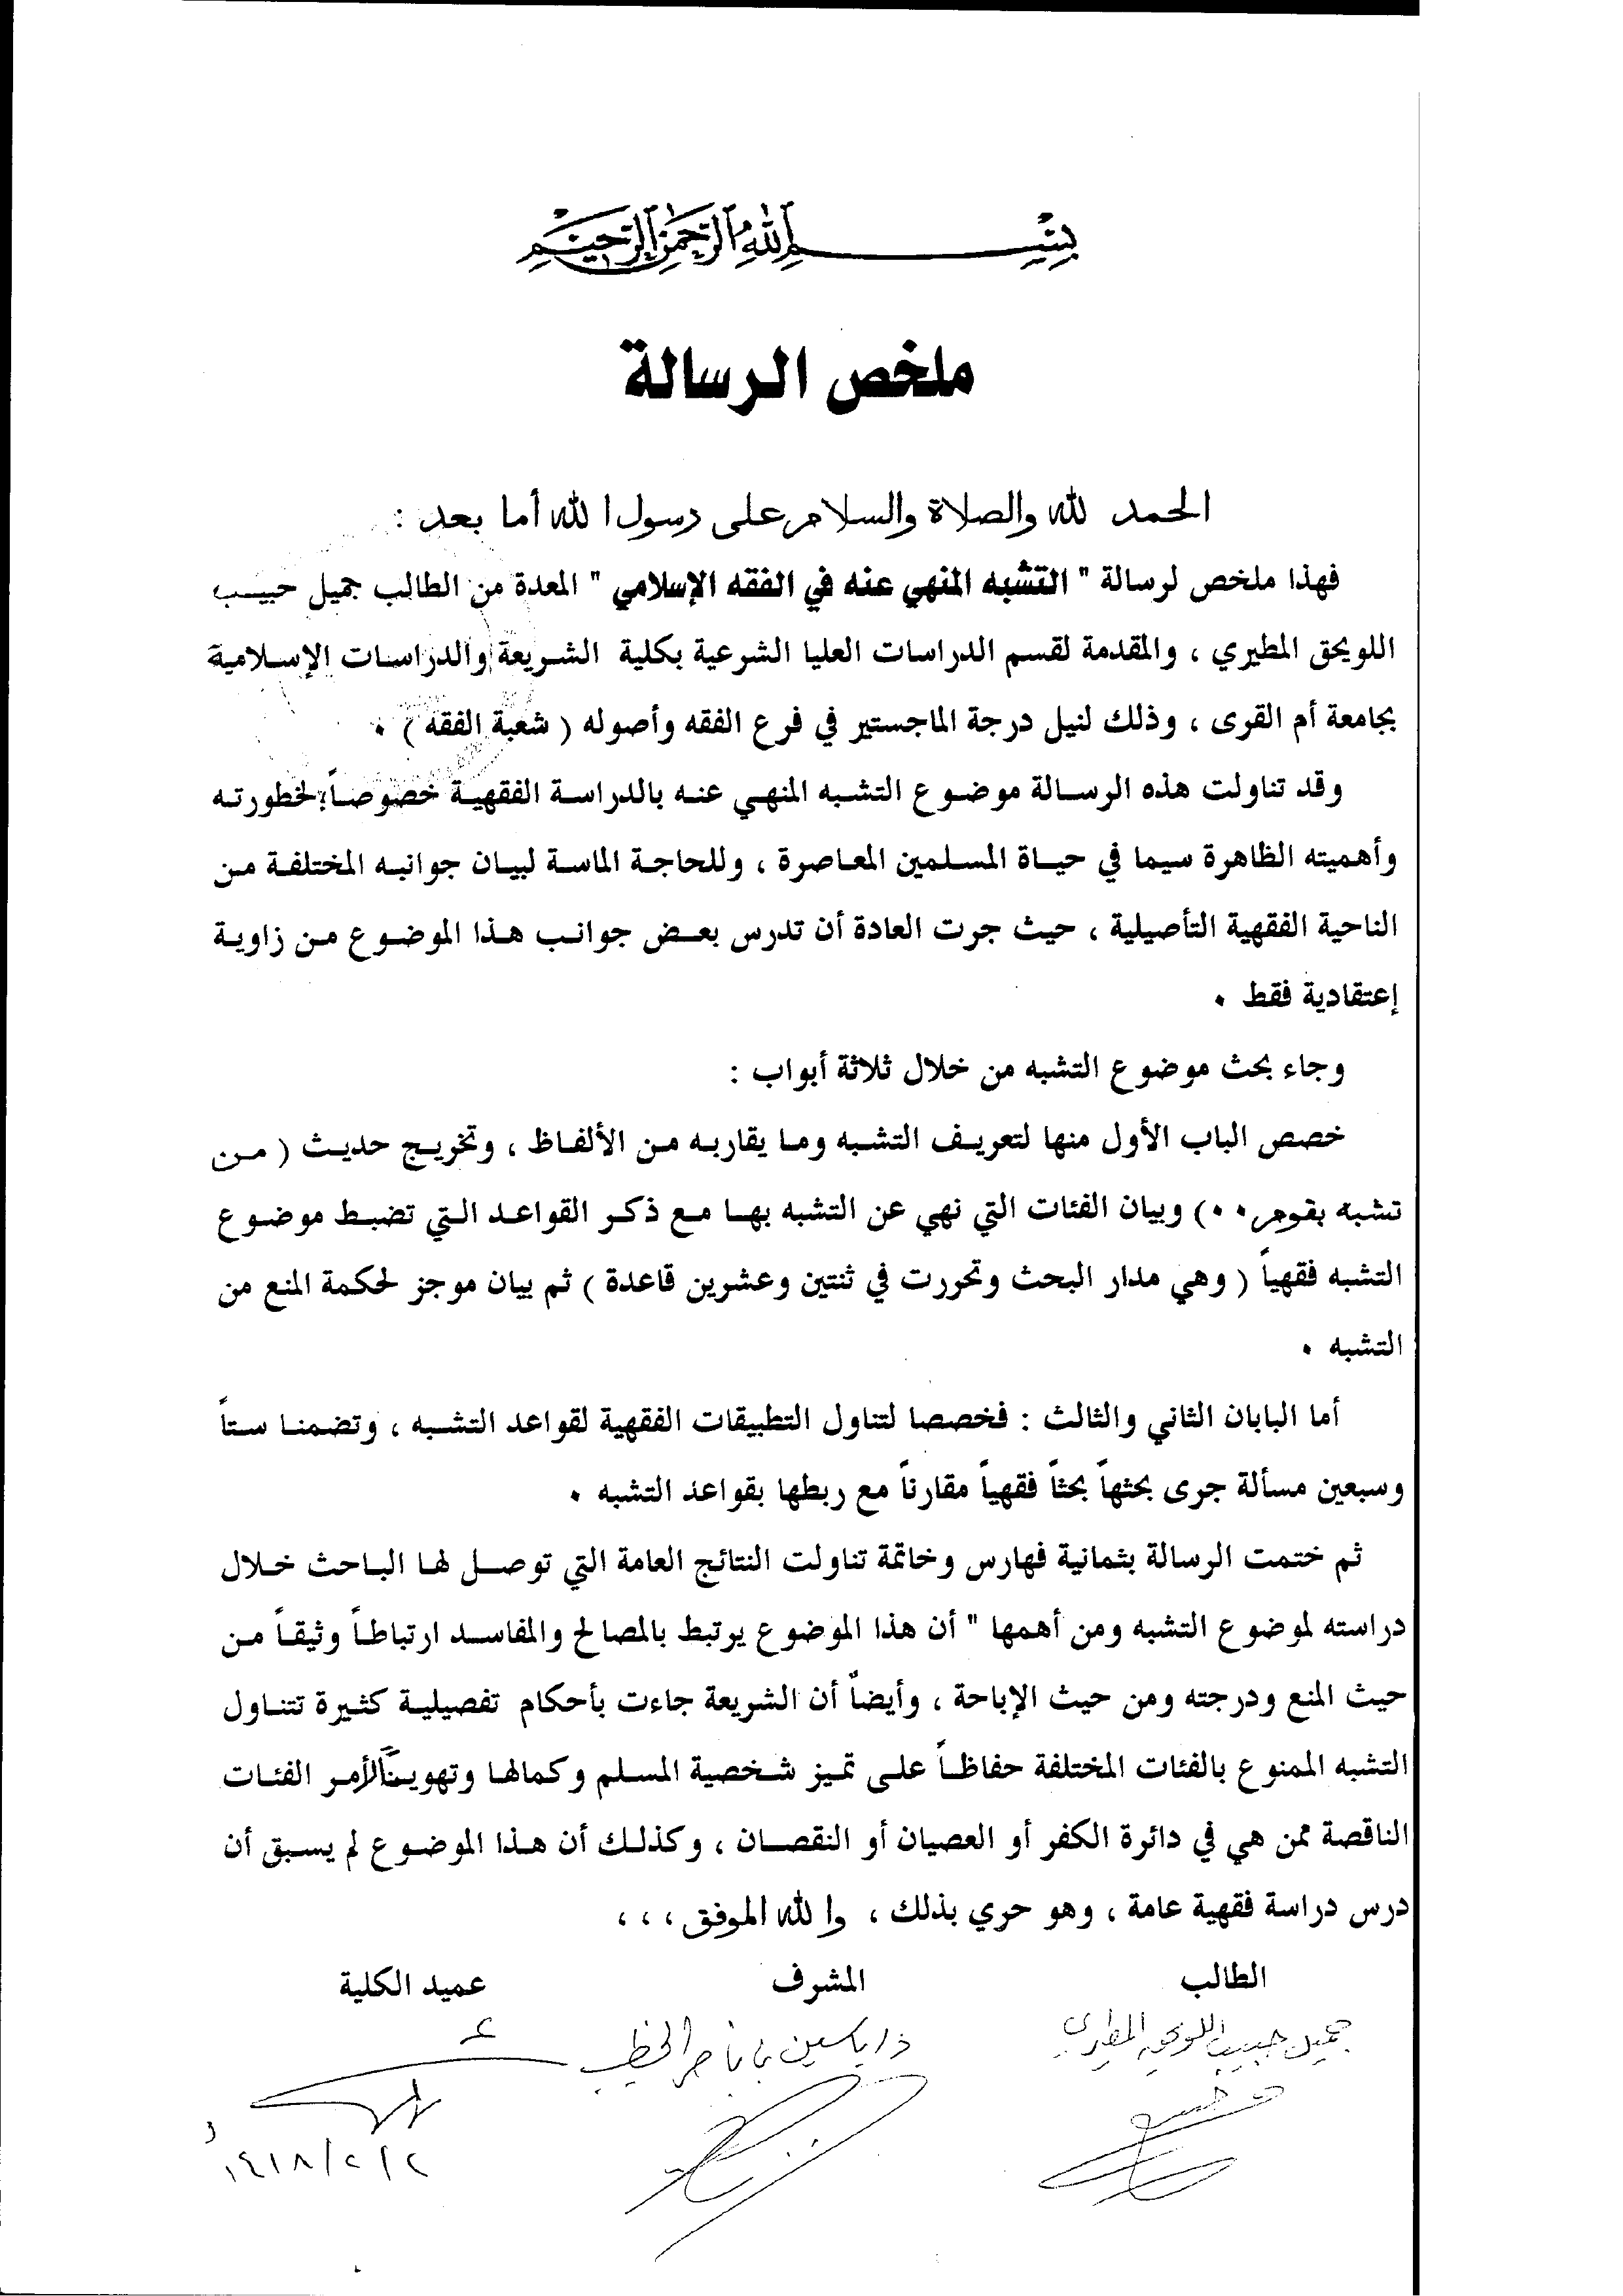 بسم الله الرحمن الرحيم
ملخص الرسالة
الحمد لله والصلاة والسلام على رسول الله أما بعد :
فهذا ملخص لرسالة " التشبه المنهي عنه في الفقه الإسلامي " المعدة من الطالب جميل حبيب
اللويحق المطيري ، والمقدمة لقسم الدراسات العليا الشرعية بكلية الشريعة والدراسات الإسلامية
بجامعة أم القرى ، وذلك لنيل درجة الماجستير في فرع الفقه وأصوله ( شعبة الفقه ) .
وقد تناولت هذه الرسالة موضوع التشبه المنهي عنه بالدراسة الفقهية خصوصاً؛ لخطورته
وأهميته الظاهرة سيما في حياة المسلمين المعاصرة ، وللحاجة الماسة لبيان جوانبه المختلفة من
الناحية الفقهية التأصيلية ، حيث جرت العادة أن تدرس بعض جوانب هذا الموضوع من زاوية
إعتقادية فقط .
وجاء بحث موضوع التشبه من خلال ثلاثة أبواب :
خصص الباب الأول منها لتعريف التشبه وما يقاربه من الألفاظ ، وتخريج حديث ( من
تشبه بقوم..) وبيان الفئات التي نهي عن التشبه بها مع ذكر القواعد التي تضبط موضوع
التشبه فقهياً ( وهي مدار البحث وتحررت في ثنتين وعشرين قاعدة ) ثم بيان موجز لحكمة المنع من
التشبه .
أما البابان الثاني والثالث : فخصصا لتناول التطبيقات الفقهية لقواعد التشبه ، وتضمنا ستاً
وسبعين مسألة جرى بحثهاً بحثاً فقهياً مقارناً مع ربطها بقواعد التشبه .
ثم ختمت الرسالة بثمانية فهارس وخاتمة تناولت النتائج العامة التي توصل لها الباحث خلال
دراسته لموضوع التشبه ومن أهمها " أن هذا الموضوع يرتبط بالمصالح والمفاسد ارتباطاً وثيقاً من
حيث المنع ودرجته ومن حيث الإباحة ، وأيضاً أن الشريعة جاءت بأحكام تفصيلية كثيرة تتناول
التشبه الممنوع بالفئات المختلفة حفاظاً على تميز شخصية المسلم وكمالها وتهويناً لأمر الفئات
الناقصة ممن هي في دائرة الكفر أو العصيان أو النقصان ، وكذلك أن هذا الموضوع لم يسبق أن
درس دراسة فقهية عامة ، وهو حري بذلك ، والله الموفق ، ، ،
الطالب المشرف عميد الكلية
جميل حبيب اللويحق المطيري د/ ياسين بن ناصر الخطيب
١٤١٨/٢/٢